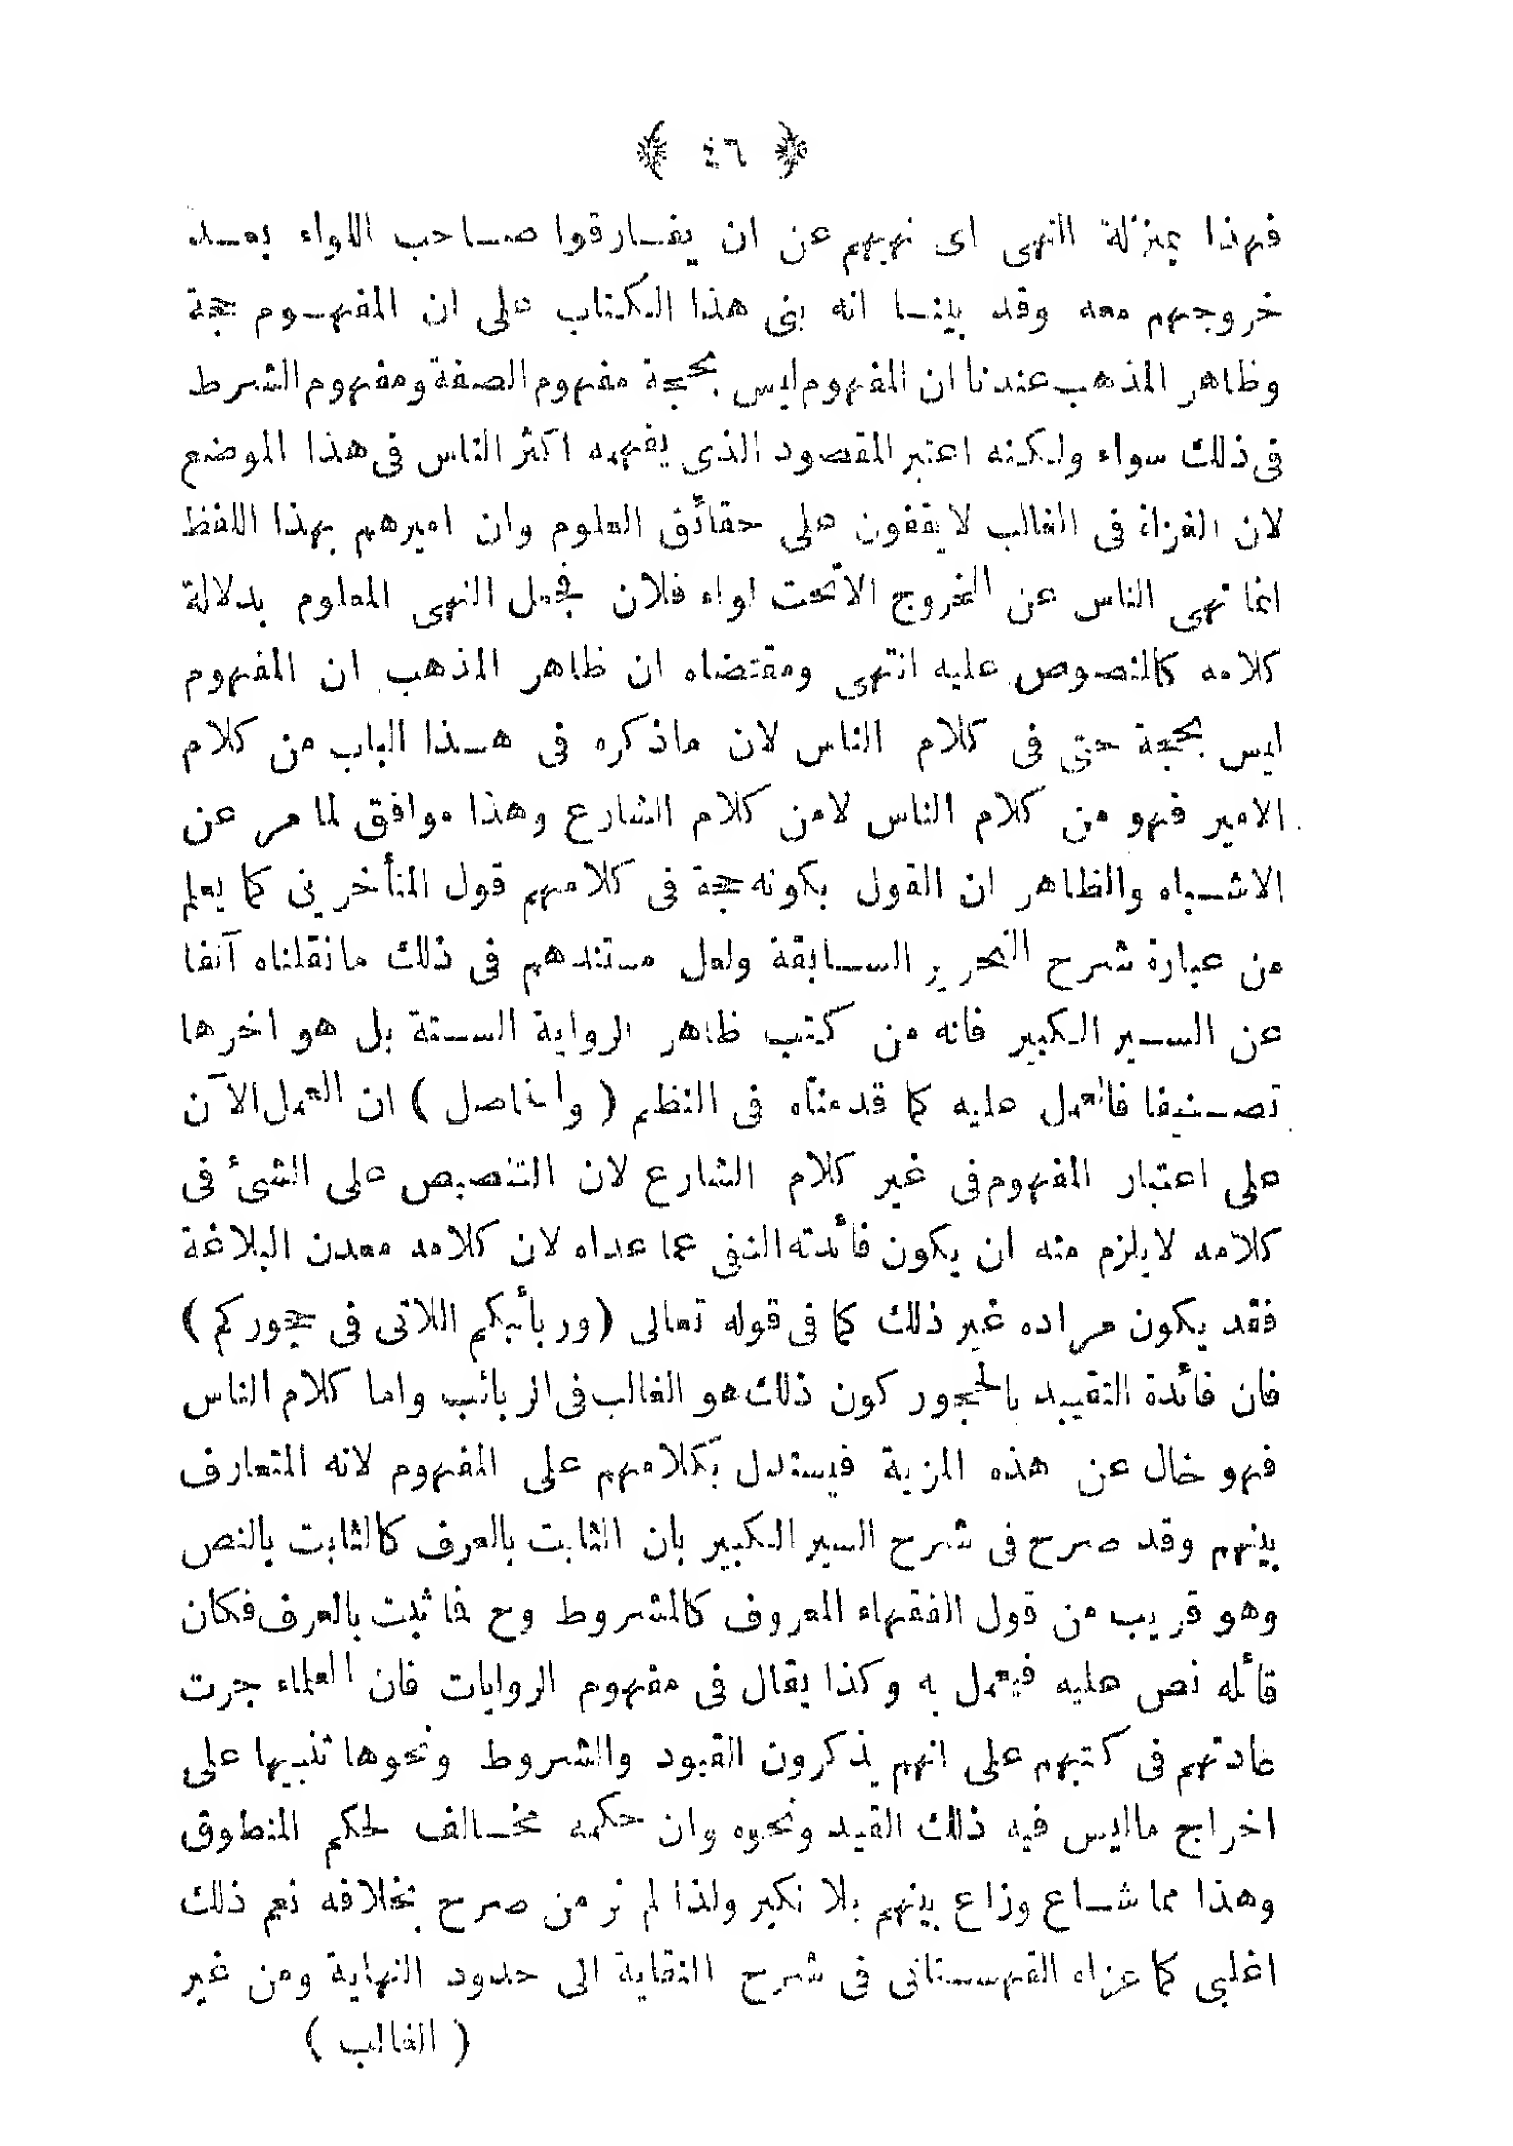 ﴿ ٤٦ ﴾
فهذا بمنزلة النهى اى نهيهم عن ان يفارقوا صاحب اللواء بعد
خروجهم معه وقد بينا انه بنى هذا الكتاب على ان المفهوم حجة
وظاهر المذهب عندنا ان المفهوم ليس بحجة مفهوم الصفة ومفهوم الشرط
فى ذلك سواء ولكنه اعتبر المقصود الذى يفهمه اكثر الناس فى هذا الموضع
لان الغزاة فى الغالب لا يقفون على حقائق العلوم وان اميرهم بهذا اللفظ
انما نهى الناس عن الخروج الا تحت لواء فلان فجعل النهى المعلوم بدلالة
كلامه كالمنصوص عليه انتهى ومقتضاه ان ظاهر المذهب ان المفهوم
ليس بحجة حتى فى كلام الناس لان ماذكره فى هذا الباب من كلام
الامير فهو من كلام الناس لامن كلام الشارع وهذا موافق لما مر عن
الاشباه والظاهر ان القول بكونه حجة فى كلامهم قول المتأخرين كما يعلم
من عبارة شرح التحرير السابقة ولعل مستندهم فى ذلك مانقلناه آنفا
عن السير الكبير فانه من كتب ظاهر الرواية الستة بل هو اخرها
تصنيفا فالعمل عليه كما قدمناه فى النظم (والحاصل) ان العمل الآن
على اعتبار المفهوم فى غير كلام الشارع لان التنصيص على الشئ فى
كلامه لايلزم منه ان يكون فائدته النفى عما عداه لان كلامه معدن البلاغة
فقد يكون مراده غير ذلك كما فى قوله تعالى (وربائبكم اللاتى فى حجوركم)
فان فائدة التقييد بالحجور كون ذلك هو الغالب فى الربائب واما كلام الناس
فهو خال عن هذه المزية فيستدل بكلامهم على المفهوم لانه المتعارف
بينهم وقد صرح فى شرح السير الكبير بان الثابت بالعرف كالثابت بالنص
وهو قريب من قول الفقهاء المعروف كالمشروط وح فما ثبت بالعرف فكان
قائله نص عليه فيعمل به وكذا يقال فى مفهوم الروايات فان العلماء جرت
عادتهم فى كتبهم على انهم يذكرون القيود والشروط ونحوها تنبيها على
اخراج ماليس فيه ذلك القيد ونحوه وان حكمه مخالف لحكم المنطوق
وهذا مما شاع وذاع بينهم بلا نكير ولذا لم نر من صرح بخلافه نعم ذلك
اغلبى كما عزاه القهستانى فى شرح النقاية الى حدود النهاية ومن غير
(الغالب)